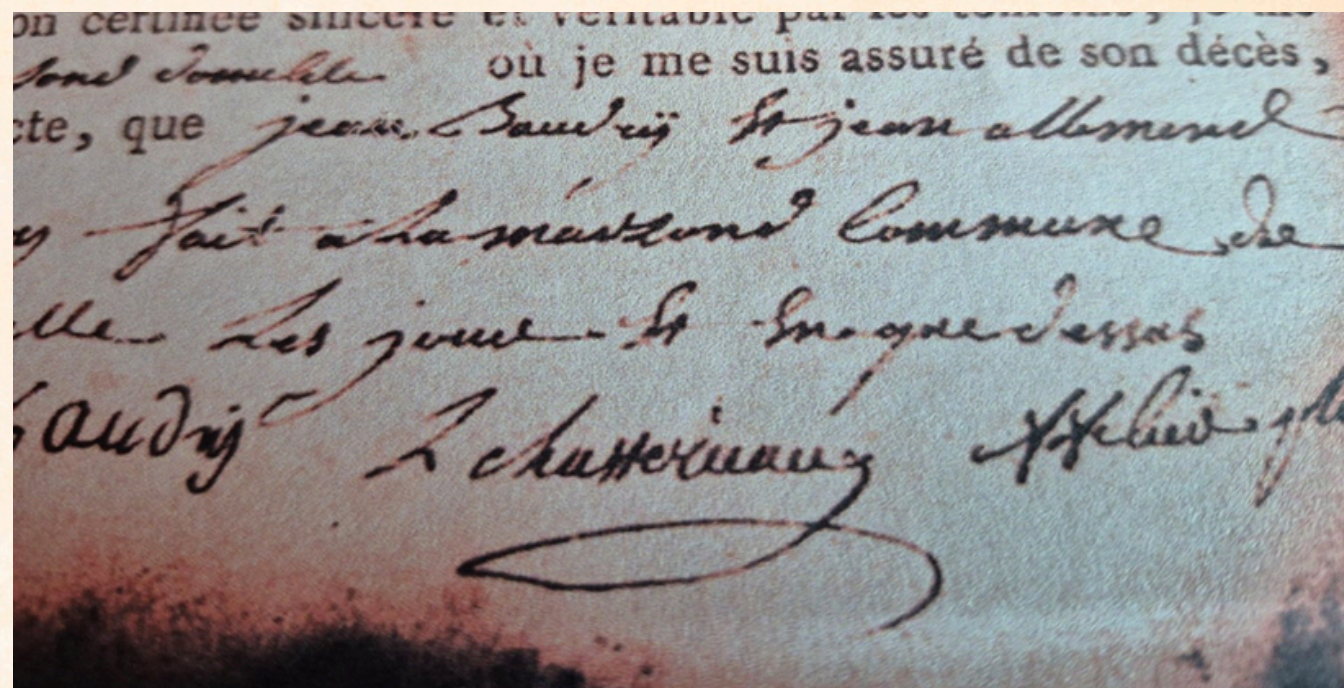 on certifiée sincère et véritable par les témoins, je me
sond domicille où je me suis assuré de son décès,
cte, que jean Baudrÿ Et jean allemend
y fait a La maizond Commune de
elle Les jour Et En que dessus
Baudrÿ L chasseriaux